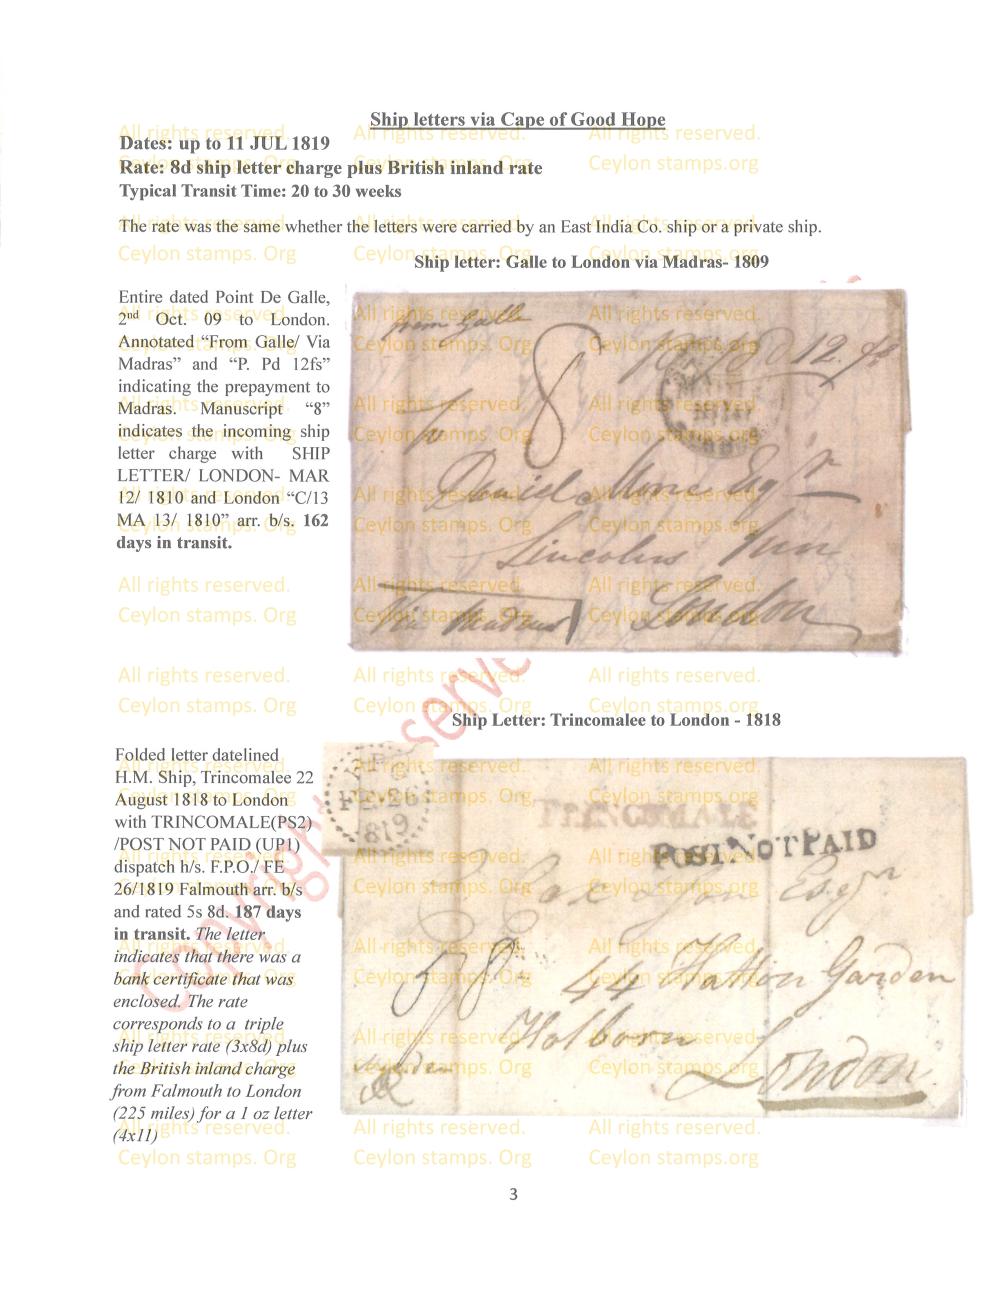 Ship letters via Cape of Good Hope
Dates: up to 11 JUL 1819
Rate: 8d ship letter charge plus British inland rate
Typical Transit Time: 20 to 30 weeks
The rate was the same whether the letters were carried by an East India Co. ship or a private ship.
Ship letter: Galle to London via Madras- 1809
Entire dated Point De Galle,
2nd Oct. 09 to London.
Annotated “From Galle/ Via
Madras” and “P. Pd 12fs”
indicating the prepayment to
Madras. Manuscript “8”
indicates the incoming ship
letter charge with SHIP
LETTER/ LONDON- MAR
12/ 1810 and London “C/13
MA 13/ 1810” arr. b/s. 162
days in transit.
from Galle
8
12 fs
David More Esqr
Lincolns Inn
London
Via Madras
Ship Letter: Trincomalee to London - 1818
Folded letter datelined
H.M. Ship, Trincomalee 22
August 1818 to London
with TRINCOMALE(PS2)
/POST NOT PAID (UP1)
dispatch h/s. F.P.O./ FE
26/1819 Falmouth arr. b/s
and rated 5s 8d. 187 days
in transit. The letter
indicates that there was a
bank certificate that was
enclosed. The rate
corresponds to a triple
ship letter rate (3x8d) plus
the British inland charge
from Falmouth to London
(225 miles) for a 1 oz letter
(4x11)
F.P.O
FE 26
1819
TRINCOMALE
POST NOT PAID
Esqr
44 Hatton Garden
Holborn
London
3
All rights reserved.
Ceylon stamps. Org
All rights reserved.
Ceylon stamps.org
Copyright reserve